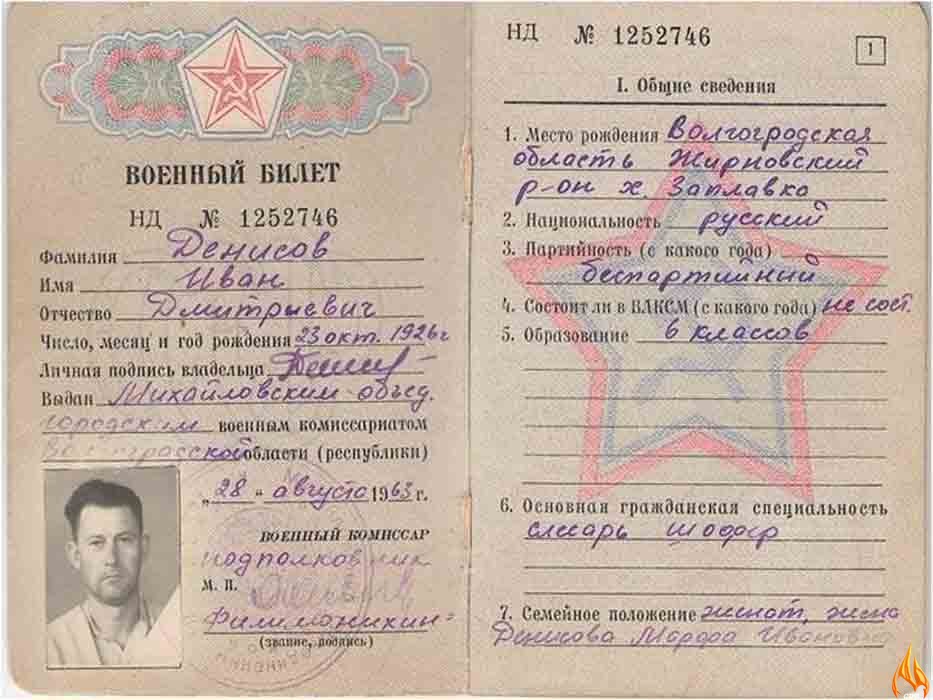 ВОЕННЫЙ БИЛЕТ
НД № 1252746
Фамилия Денисов
Имя Иван
Отчество Дмитриевич
Число, месяц и год рождения 23 окт. 1926 г
Личная подпись владельца
Выдан Михайловским объед.
городским военным комиссариатом
Волгоградской области (республики)
„28" августа 1963 г.
ВОЕННЫЙ КОМИССАР
подполковник
М. П.
Филимонихин
(звание, подпись)
НД № 1252746
1
I. Общие сведения
1. Место рождения Волгогродская
область Жирновский
р-он х. Заплавка
2. Национальность русский
3. Партийность (с какого года)
беспартийный
4. Состоит ли в ВЛКСМ (с какого года) не сост.
5. Образование 6 классов
6. Основная гражданская специальность
слесарь шофер
7. Семейное положение женат, жена
Денисова Марфа Ивановна